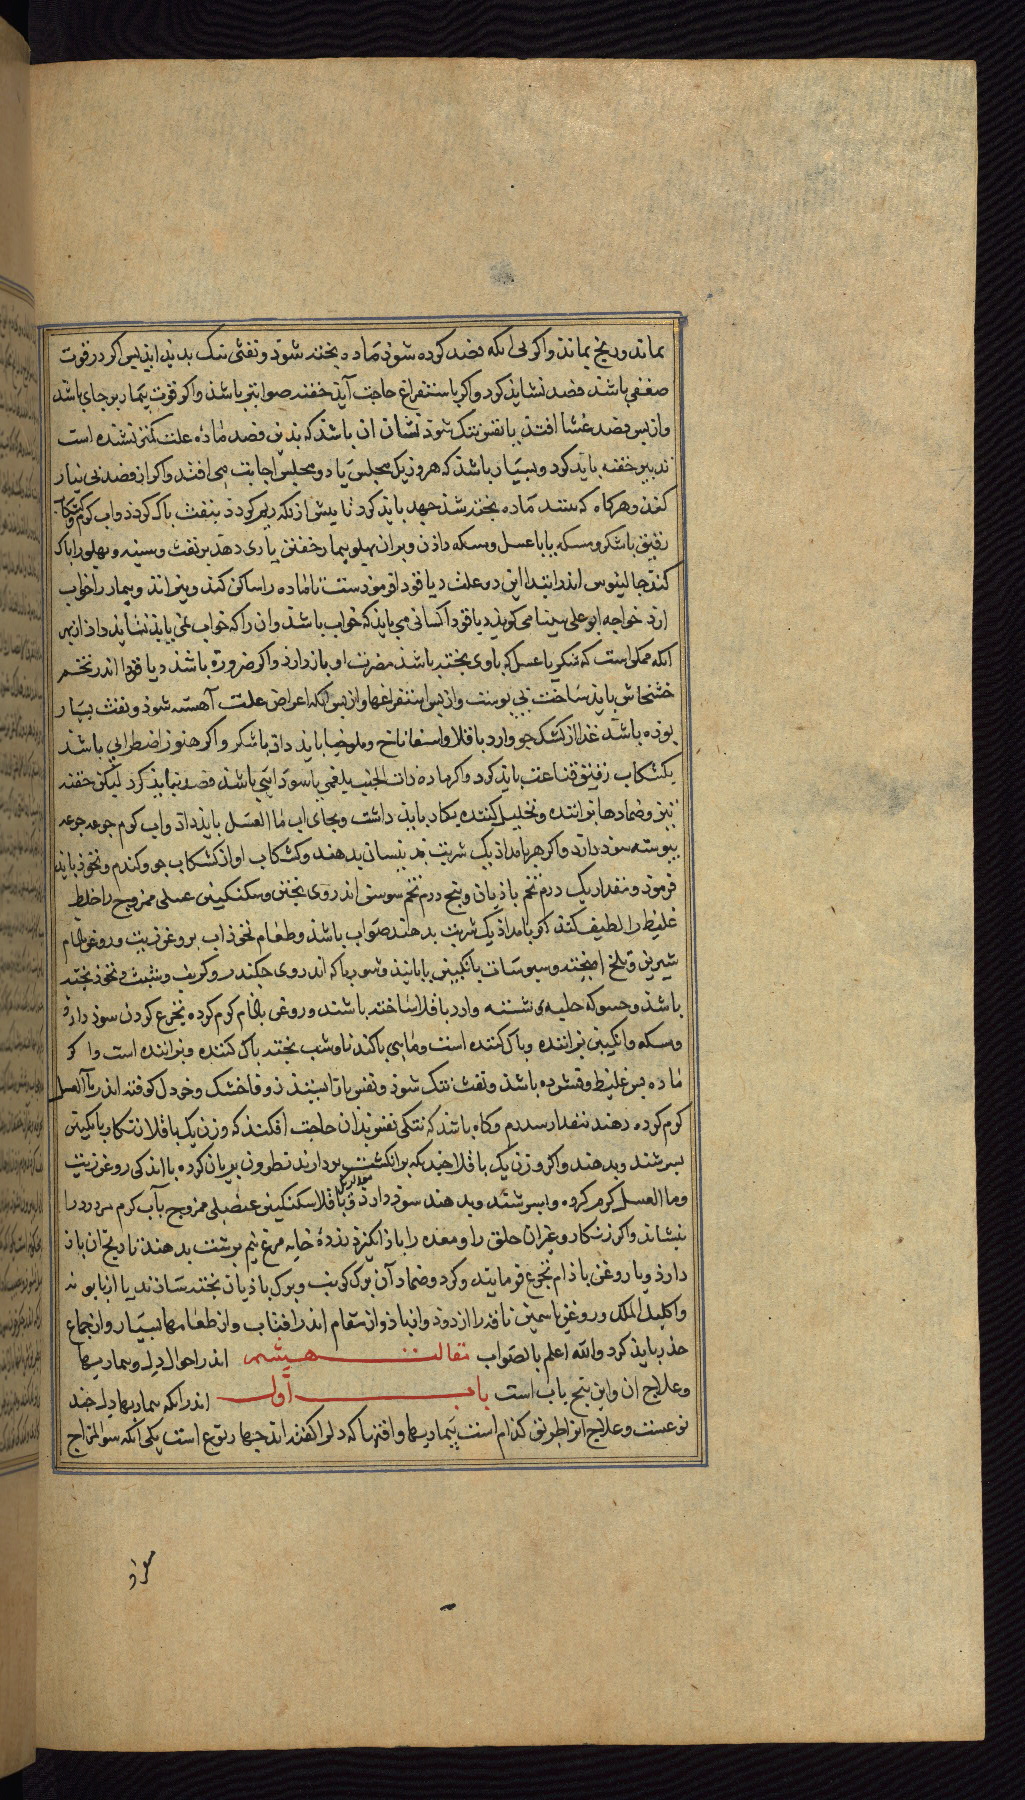 بماند و رنج بماند و اگر بی آنکه فصد کرده شود ماده پخته شود و نفثی نیک بدید آید پس اگر در قوت
ضعفی باشد فصد نشاید کرد و اگر باستفراغ حاجت آید حقنه صوابتر باشد و اگر قوت بیمار بر جای باشد
و از پس فصد غشا افتد یا نفس تنگ شود نشان آن باشد که بدین فصد ماده علت کمتر نشده است
تدبیر حقنه باید کرد و بسیار باشد که هر روز یک مجلس یا دو مجلس اجابت می افتد و اگر از فصد بی نیاز
کند و هرگاه که ماده پخته شد جهد باید کرد تا پیش از آنکه ریم گردد بنفث پاک گردد و اب گرم و کشکاب
رقیق با شکر و مسکه یا با عسل و مسکه دادن و بر ان پهلو بیمار خفتن یاری دهد بر نفث و سینه و پهلو را پاک
کند جالینوس اندر ابتدا این دو علت دیاقودا فرمودست تا ماده را ساکن کند و بپزاند و بیمار را خواب
ارد خواجه ابو علی سینا می گوید دیاقودا کسانی را می باید که خواب باشد و ان را که خواب نمی باید نشاید داد از بهر
آنکه ممکن است که شکر یا عسل که باوی پخته باشد مضرت او باز دارد و اگر ضرورة باشد دیاقودا اندر تخم
خشخاش باید ساخت بی پوست و از پس استفراغها و از پس آنکه اعراض علت آهسته شود و نفث بسیار
بوده باشد غذا از کشک جو وارد باقلا و اسفاناخ و ملوخیا باید داد با شکر و اگر هنوز اضطرابی باشد
بکشکاب رقیق قناعت باید کرد و اگر ماده ذات الجنب بلغمی یا سودایی باشد فصد نباید کرد لیکن حقنه
تیز و ضمادها پزاننده و تحلیل کننده بکار باید داشت و بجای اب ما العسل باید داد و اب گرم جرعه جرعه
پیوسته سود دارد و اگر هر بامداد یک شربت بدهند و کشکاب او از کشکاب جو و گندم و نخود باید
فرمود و مقدار یک درم تخم بادیان و پنج درم تخم سوس اندر وی پختن و سکنکبین عسلی ممزوج را خلط
غلیظ را لطیف کند گو بامداد یک شربت بدهند صواب باشد و طعام نخوداب بروغن زیت و روغن بادام
شیرین و تلخ امیخته و سبوسات بانگبین یا بانیذ و شوربا که اندر وی چگندر و کرنب و شبت و نخود پخته
باشد و حسو که حلبه ی شسته وارد باقلا ساخته باشند و روغن بادام گرم کرده بجرع کردن سود دارد
و مسکه و انگبین پزاننده و پاک کننده است و ماهی با کندنا و شبت پخته پاک کننده و پزاننده است و اگر
ماده بس غلیظ و فشرده باشد و نفث تنگ شود و نفس باز ایستد زوفا خشک و خردل کوفته اندر ما العسل
گرم کرده دهند مقدار سه درم و گاه باشد که تنگی نفس بدان حاجت افکند که وزن یک باقلا زنگار بانگبین
بسرشند و بدهند و اگر وزن یک باقلا چند بکه بر انگشت بردارند نطرون بریان کرده با اندکی روغن زیت
و ما العسل گرم کرده و بسرشند و بدهند سود دارد و باقلا سکنکبین عنصلی ممزوج بآب گرم سر درد را
بنشاند و اگر زنگار و غیران حلق را و معده را باز انگیزد زردهٔ خایه مرغ نیم برشت بدهند تا رنج ان باز
دارد و یا روغن بادام تجرع فرمایند و گرد و ضماد آن برگ کرنب و برگ بادیان پخته سازند یا از بابونه
و اکلیل الملک و روغن یاسمین تا قدرا از دود و انباذ و از مقام اندر افتاب و از طعامها بسیار و از جماع
حذر باید کرد والله اعلم بالصواب مقالت هشتم اندر احوال دل و بیماریها
و علاج ان و این پنج باب است باب اول اندر آنکه بیماریها دل چند
نوعست و علاج انرا طریق کدام است بیماریها و افتها که دل را افتد اندر چهار نوع است یکی انکه سو المزاج
مفرد